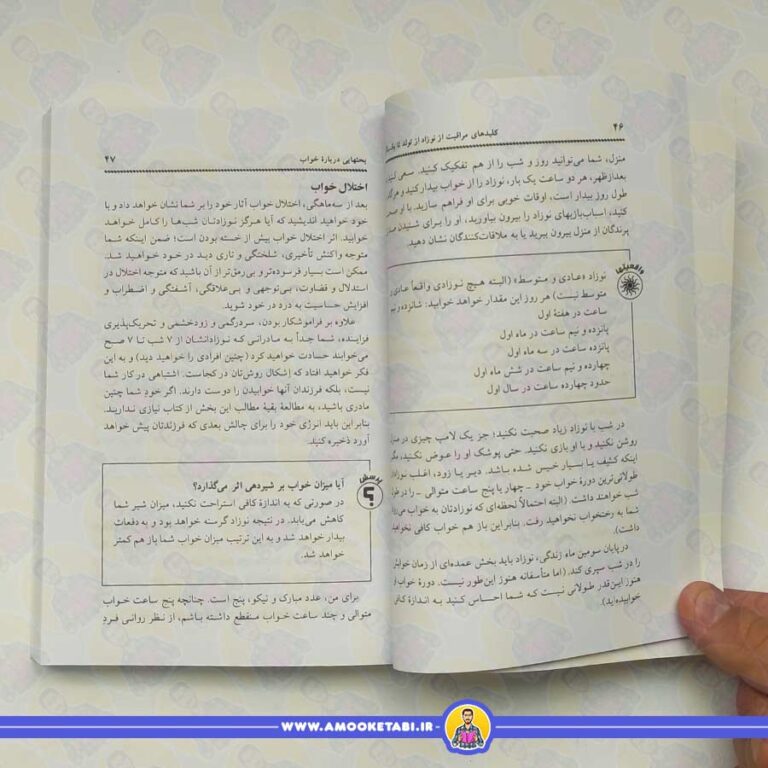 ۴۶
کلیدهای مراقبت از نوزاد از تولد تا
منزل، شما می‌توانید روز و شب را از هم تفکیک کنید. سعی کنید
بعدازظهر، هر دو ساعت یک بار، نوزاد را از خواب بیدار کنید و
طول روز بیدار است، اوقات خوبی برای او فراهم سازید. با او
کنید، اسباب‌بازیهای نوزاد را بیرون بیاورید، او را برای شنیدن
پرندگان از منزل بیرون ببرید یا به ملاقات‌کنندگان نشان دهید.
واقعیتها
نوزاد «عادی و متوسط» (البته هیچ نوزادی واقعاً عادی و
متوسط نیست) هر روز این مقدار خواهد خوابید: شانزده و نیم
ساعت در هفتهٔ اول
پانزده و نیم ساعت در ماه اول
پانزده ساعت در سه ماه اول
چهارده و نیم ساعت در شش ماه اول
حدود چهارده ساعت در سال اول
در شب با نوزاد زیاد صحبت نکنید؛ جز یک لامپ چیزی در
روشن نکنید و با او بازی نکنید. حتی پوشک او را عوض نکنید،
اینکه کثیف یا بسیار خیس شده باشد. دیر یا زود، اغلب
طولانی‌ترین دورهٔ خواب خود – چهار یا پنج ساعت متوالی – را در
شب خواهند داشت (البته احتمالاً لحظه‌ای که نوزادتان به خواب
شما به رختخواب نخواهید رفت. بنابراین باز هم خواب کافی
داشت).
در پایان سومین ماه زندگی، نوزاد باید بخش عمده‌ای از زمان
را در شب سپری کند. (اما متأسفانه هنوز این‌طور نیست. دورهٔ خواب
هنوز این‌قدر طولانی نیست که شما احساس کنید به اندازهٔ
خوابیده‌اید).
بحثهایی دربارهٔ خواب
۴۷
اختلال خواب
بعد از سه‌ماهگی، اختلال خواب آثار خود را بر شما نشان خواهد داد و با
خود خواهید اندیشید که آیا هرگز نوزادتان شب‌ها را کامل خواهد
خوابید. اثر اختلال خواب بیش از خسته بودن است؛ ضمن اینکه شما
متوجه واکنش تأخیری، شلختگی و تاری دید در خود خواهید شد.
ممکن است بسیار فرسوده‌تر و بی‌رمق‌تر از آن باشید که متوجه اختلال در
استدلال و قضاوت، بی‌توجهی و بی‌علاقگی، آشفتگی و اضطراب و
افزایش حساسیت به درد در خود شوید.
علاوه بر فراموشکار بودن، سردرگمی و زودخشمی و تحریک‌پذیری
فزاینده، شما جداً به مادرانی که نوزادانشان از ۷ شب تا ۷ صبح
می‌خوابند حسادت خواهید کرد (چنین افرادی را خواهید دید) و به این
فکر خواهید افتاد که إشکال روش‌تان در کجاست. اشتباهی در کار شما
نیست، بلکه فرزندان آنها خوابیدن را دوست دارند. اگر خودِ شما چنین
مادری باشید، به مطالعهٔ بقیهٔ مطالب این بخش از کتاب نیازی ندارید.
بنابراین باید انرژی خود را برای چالش بعدی که فرزندتان پیش خواهد
آورد ذخیره کنید.
پرسش
؟
آیا میزان خواب بر شیردهی اثر می‌گذارد؟
در صورتی که به اندازهٔ کافی استراحت نکنید، میزان شیر شما
کاهش می‌یابد. در نتیجه نوزاد گرسنه خواهد بود و به دفعات
بیدار خواهد شد و به این ترتیب میزان خواب شما باز هم کمتر
خواهد شد.
برای من، عدد مبارک و نیکو، پنج است. چنانچه پنج ساعت خواب
متوالی و چند ساعت خواب منقطع داشته باشم، از نظر روانی فردِ
WWW.AMOOKETABI.IR